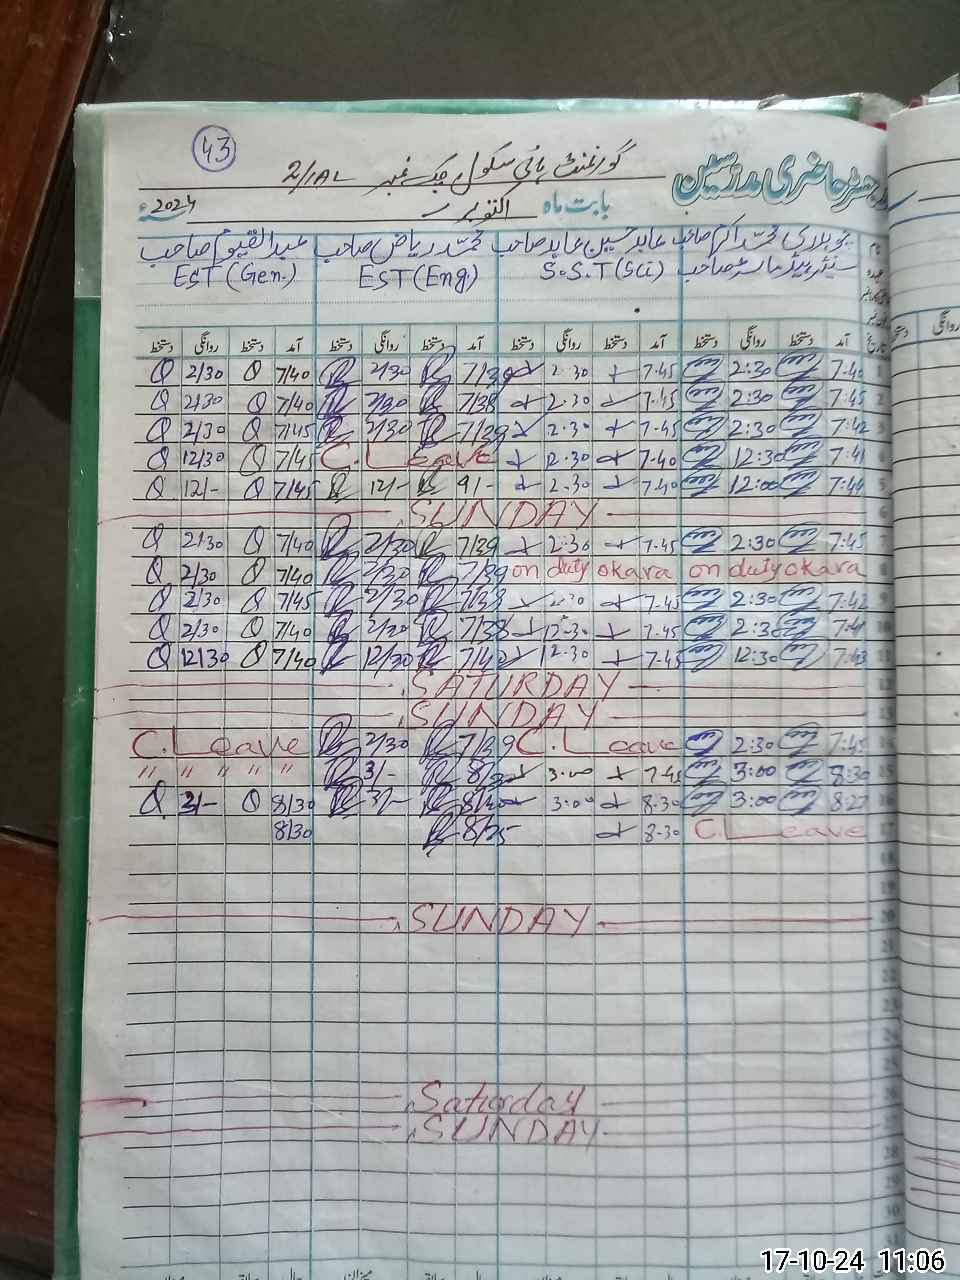 43
رجسٹر حاضری مدرسین گورنمنٹ ہائی سکول چک نمبر 2/1AL
بابت ماہ اکتوبر 2024ء
چوہدری محمد اکرم صاحب عابد حسین عابد صاحب محمد ریاض صاحب عبدالقیوم صاحب
سینئر ہیڈ ماسٹر صاحب S.S.T (Sci) EST (Eng) EST (Gen.)
آمد دستخط روانگی دستخط آمد دستخط روانگی دستخط آمد دستخط روانگی دستخط آمد دستخط روانگی دستخط
1 7:40 2:30 7-45 2-30 7/39 2/30 7/40 2/30
2 7:45 2:30 7-45 2-30 7/38 2/30 7/40 2/30
3 7:42 2:30 7-45 2-30 7/38 2/30 7/45 2/30
4 7:41 12:30 7-40 12-30 C. Leave 7/45 12/30
5 7:44 12:00 7-40 2-30 9/- 12/- 7/45 12/-
6 SUNDAY
7 7:45 2:30 7-45 2-30 7/39 2/30 7/40 2/30
8 on duty okara on duty okara 7/39 2/30 7/40 2/30
9 7:42 2:30 7-45 7/38 2/30 7/45 2/30
10 2:30 7-45 12-30 7/38 2/30 7/40 2/30
11 7:43 12:30 7-45 12-30 12/30 7/40 12/30
12 SATURDAY
13 SUNDAY
14 7:45 2:30 C. Leave 7/39 2/30 C. Leave
15 8:30 3:00 7-45 3-00 3/- " " " "
16 8:27 3:00 8-30 3:00 3/- 8/30 3/-
17 C. Leave 8-30 8/25 8/30
18
19
20 SUNDAY
21
22
23
24
25
26 Saturday
27 SUNDAY
28
29
30
17-10-24 11:06